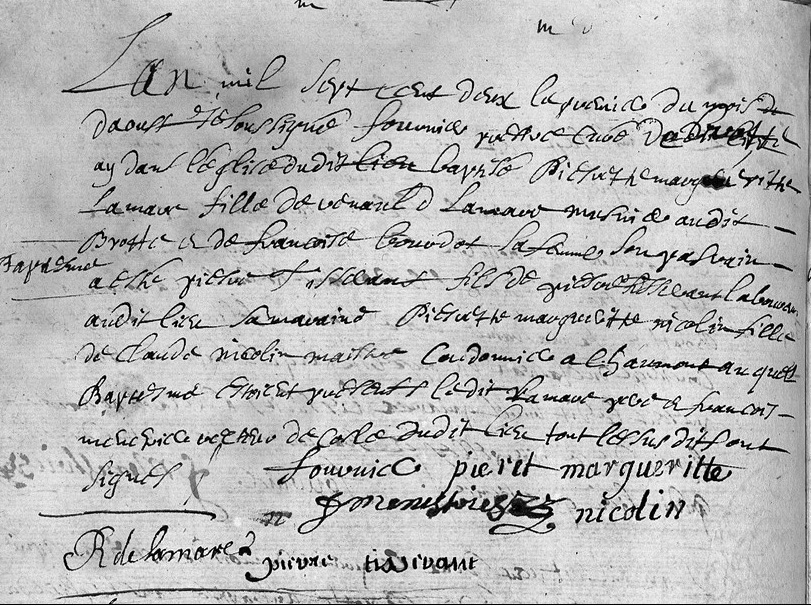 Lan mil sept cent deux le premier du mois de
daoust Je soussigné fournier prettre curé
ay dans léglise dudit lieu baptisé Pierrette margueritte
Lamare fille de renauld Lamare musnier audit
Brotte et de francoise boudot sa femme son parrain
Baptesme
a esté pierre tisserant fils de pierre tisserant laboureur
audit lieu sa maraine Pierrette margueritte nicolin fille
de Claude nicolin maistre Cordonnier a Charmont auquel
Baptesme estoient presents ledit Lamare pere et francois
menestrier recteur descole dudit lieu tout lessus dit sont
signes
fournier pierit margueritte
menestrier nicolin
R delamare
pierre tisserant